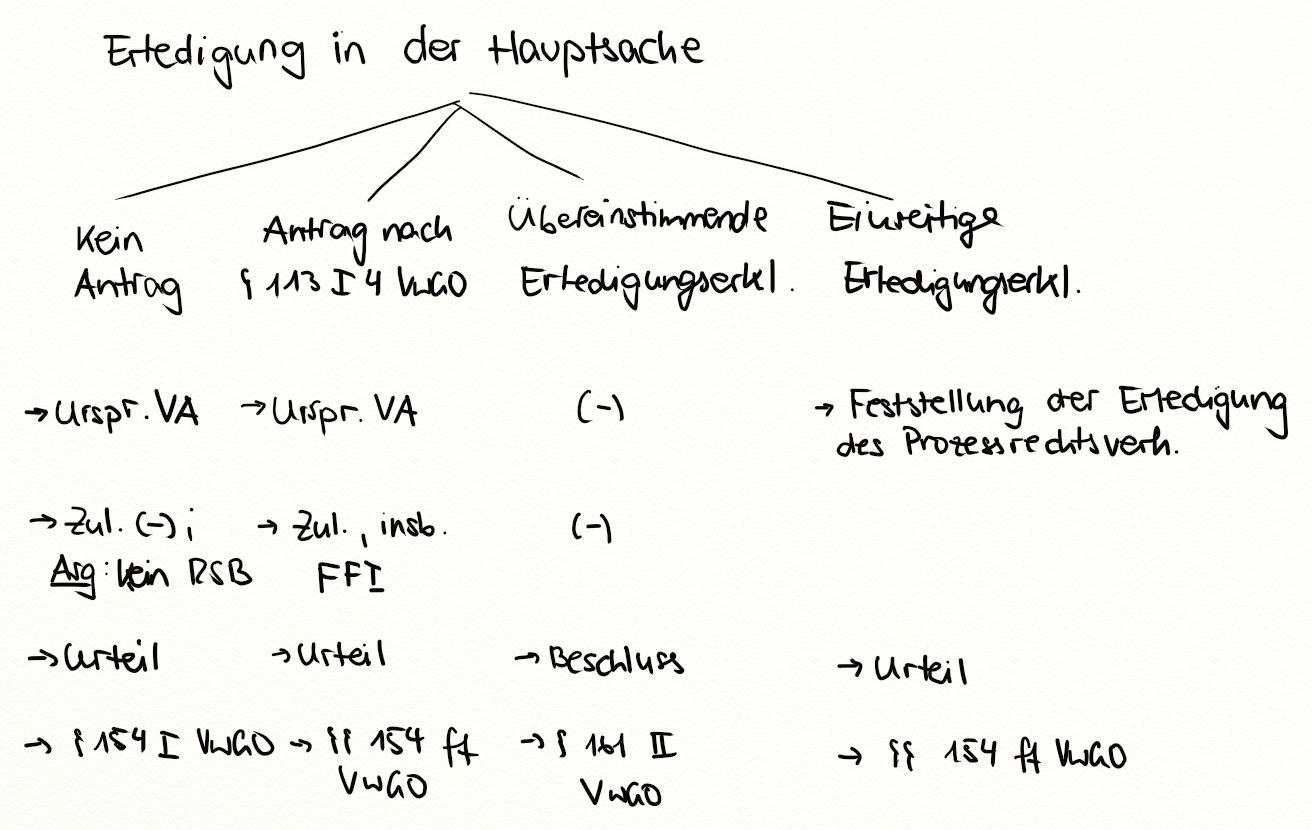 Erledigung in der Hauptsache
Kein
Antrag
Antrag nach
§ 113 I 4 VwGO
Übereinstimmende
Erledigungserkl.
Einseitige
Erledigungserkl.
→ Urspr. VA
→ Urspr. VA
(-)
→ Feststellung der Erledigung
des Prozessrechtsverh.
→ Zul. (-);
Arg: kein RSB
→ Zul., insb.
FFI
(-)
→ Urteil
→ Urteil
→ Beschluss
→ Urteil
→ § 154 I VwGO
→ §§ 154 ff
VwGO
→ § 161 II
VwGO
→ §§ 154 ff VwGO